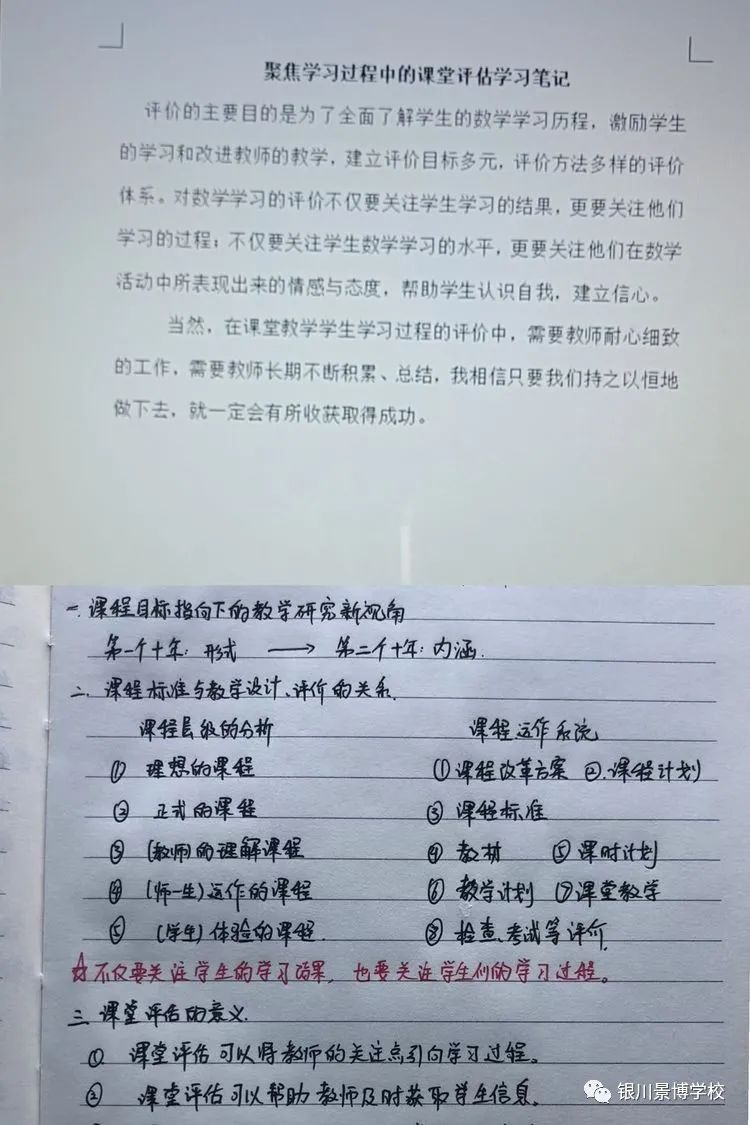 聚焦学习过程中的课堂评估学习笔记
评价的主要目的是为了全面了解学生的数学学习历程，激励学生
的学习和改进教师的教学，建立评价目标多元，评价方法多样的评价
体系。对数学学习的评价不仅要关注学生学习的结果，更要关注他们
学习的过程；不仅要关注学生数学学习的水平，更要关注他们在数学
活动中所表现出来的情感与态度，帮助学生认识自我，建立信心。
当然，在课堂教学学生学习过程的评价中，需要教师耐心细致
的工作，需要教师长期不断积累、总结，我相信只要我们持之以恒地
做下去，就一定会有所收获取得成功。
一.课程目标指向下的教学研究新视角
第一个十年：形式 → 第二个十年：内涵.
二.课程标准与教学设计、评价的关系.
课程层级的分析 课程运作系统
① 理想的课程 ①课程改革方案 ②.课程计划
② 正式的课程 ③ 课程标准
③ (教师)的理解课程 ④ 教材 ⑤课时计划
④ (师一生)运作的课程 ⑥ 教学计划 ⑦课堂教学
⑤ (学生)体验的课程. ⑧ 检查、考试等评价.
☆不仅要关注学生的学习结果，也要关注学生们的学习过程。
三.课堂评估的意义.
①. 课堂评估可以将教师的关注点引向学习过程。
② 课堂评估可以帮助教师及时获取学生信息。
银川景博学校